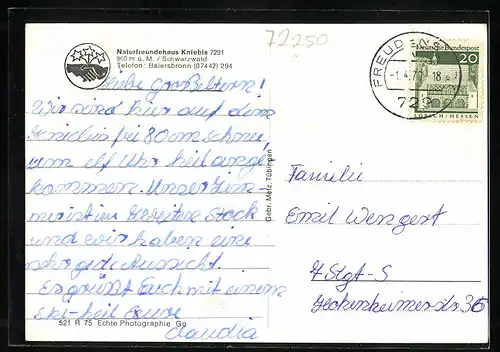 72250
Naturfreundehaus Kniebis 7291
960 m ü. M. / Schwarzwald
Telefon: Baiersbronn (07442) 294
Liebe Großeltern!
Wir sind hier auf dem
Kniebis bei 80cm Schnee,
um elf Uhr heil ange-
kommen. Unser Zim-
mer ist im zweiten Stock
und wir haben eine
sehr gute Aussicht.
Es grüßt Euch mit einem
Ski-heil Eure
Claudia
521 R 75 Echte Photographie
Gebr. Metz, Tübingen
FREUDENS
-1.4.7 18
729
Deutsche Bundespost
20
LORSCH/HESSEN
Familie
Emil Wengert
7 Stgt-S